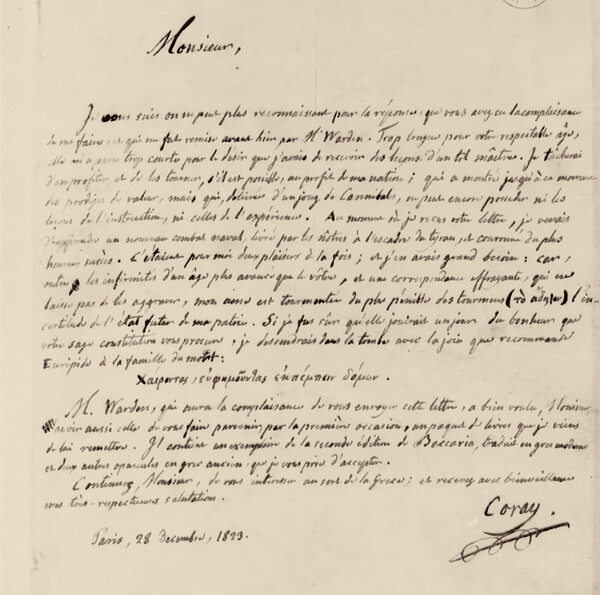 Monsieur,
Je vous suis on ne peut plus reconnaissant pour la réponse, que vous avez eu la complaisance
de me faire, et qui me fut remise avant hier par Mr Warden. Trop longue pour votre respectable âge,
elle m'a paru trop courte pour le désir que j'avais de recevoir des leçons d'un tel maître. Je tâcherai
d'en profiter et de les tourner, s'il est possible, au profit de ma nation; qui a montré jusqu'à ce moment
des prodiges de valeur, mais qui, délivrée d'un joug de Cannibals, ne peut encore posséder ni les
leçons de l'instruction, ni celles de l'expérience. Au moment où je reçus votre lettre, je venais
d'apprendre un nouveau combat naval, livré par les nôtres à l'escadre du tyran, et couronné du plus
heureux succès. C'étaient pour moi deux plaisirs à la fois; et j'en avais grand besoin: car,
outre les infirmités d'un âge plus avancé que le vôtre, et une correspondance effrayante, qui ne
laisse pas de les aggraver, mon âme est tourmentée du plus pénible des tourmens (τὸ ἄδηλον) l'in-
certitude de l'état futur de ma patrie. Si je fus sûr qu'elle jouirait un jour du bonheur que
votre sage constitution vous procure, je descendrais dans la tombe avec la joie que recommande
Euripide à la famille du mort:
Χαίροντας, εὐφημοῦντας ἐκπέμπειν δόμων.
M. Warden, qui aura la complaisance de vous envoyer cette lettre, a bien voulu, Monsieur,
avoir aussi celle de vous faire parvenir par la première occasion, un paquet de livres que je viens
de lui remettre. Il contient un exemplaire de la seconde édition de Beccaria, traduit en grec moderne
et deux autres opuscules en grec ancien, que je vous prie d'accepter.
Continuez, Monsieur, de vous intéresser au sort de la Grèce; et recevez avec bienveillance
mes très-respectueuses salutations.
Coray.
Paris, 28 Decembre, 1823.